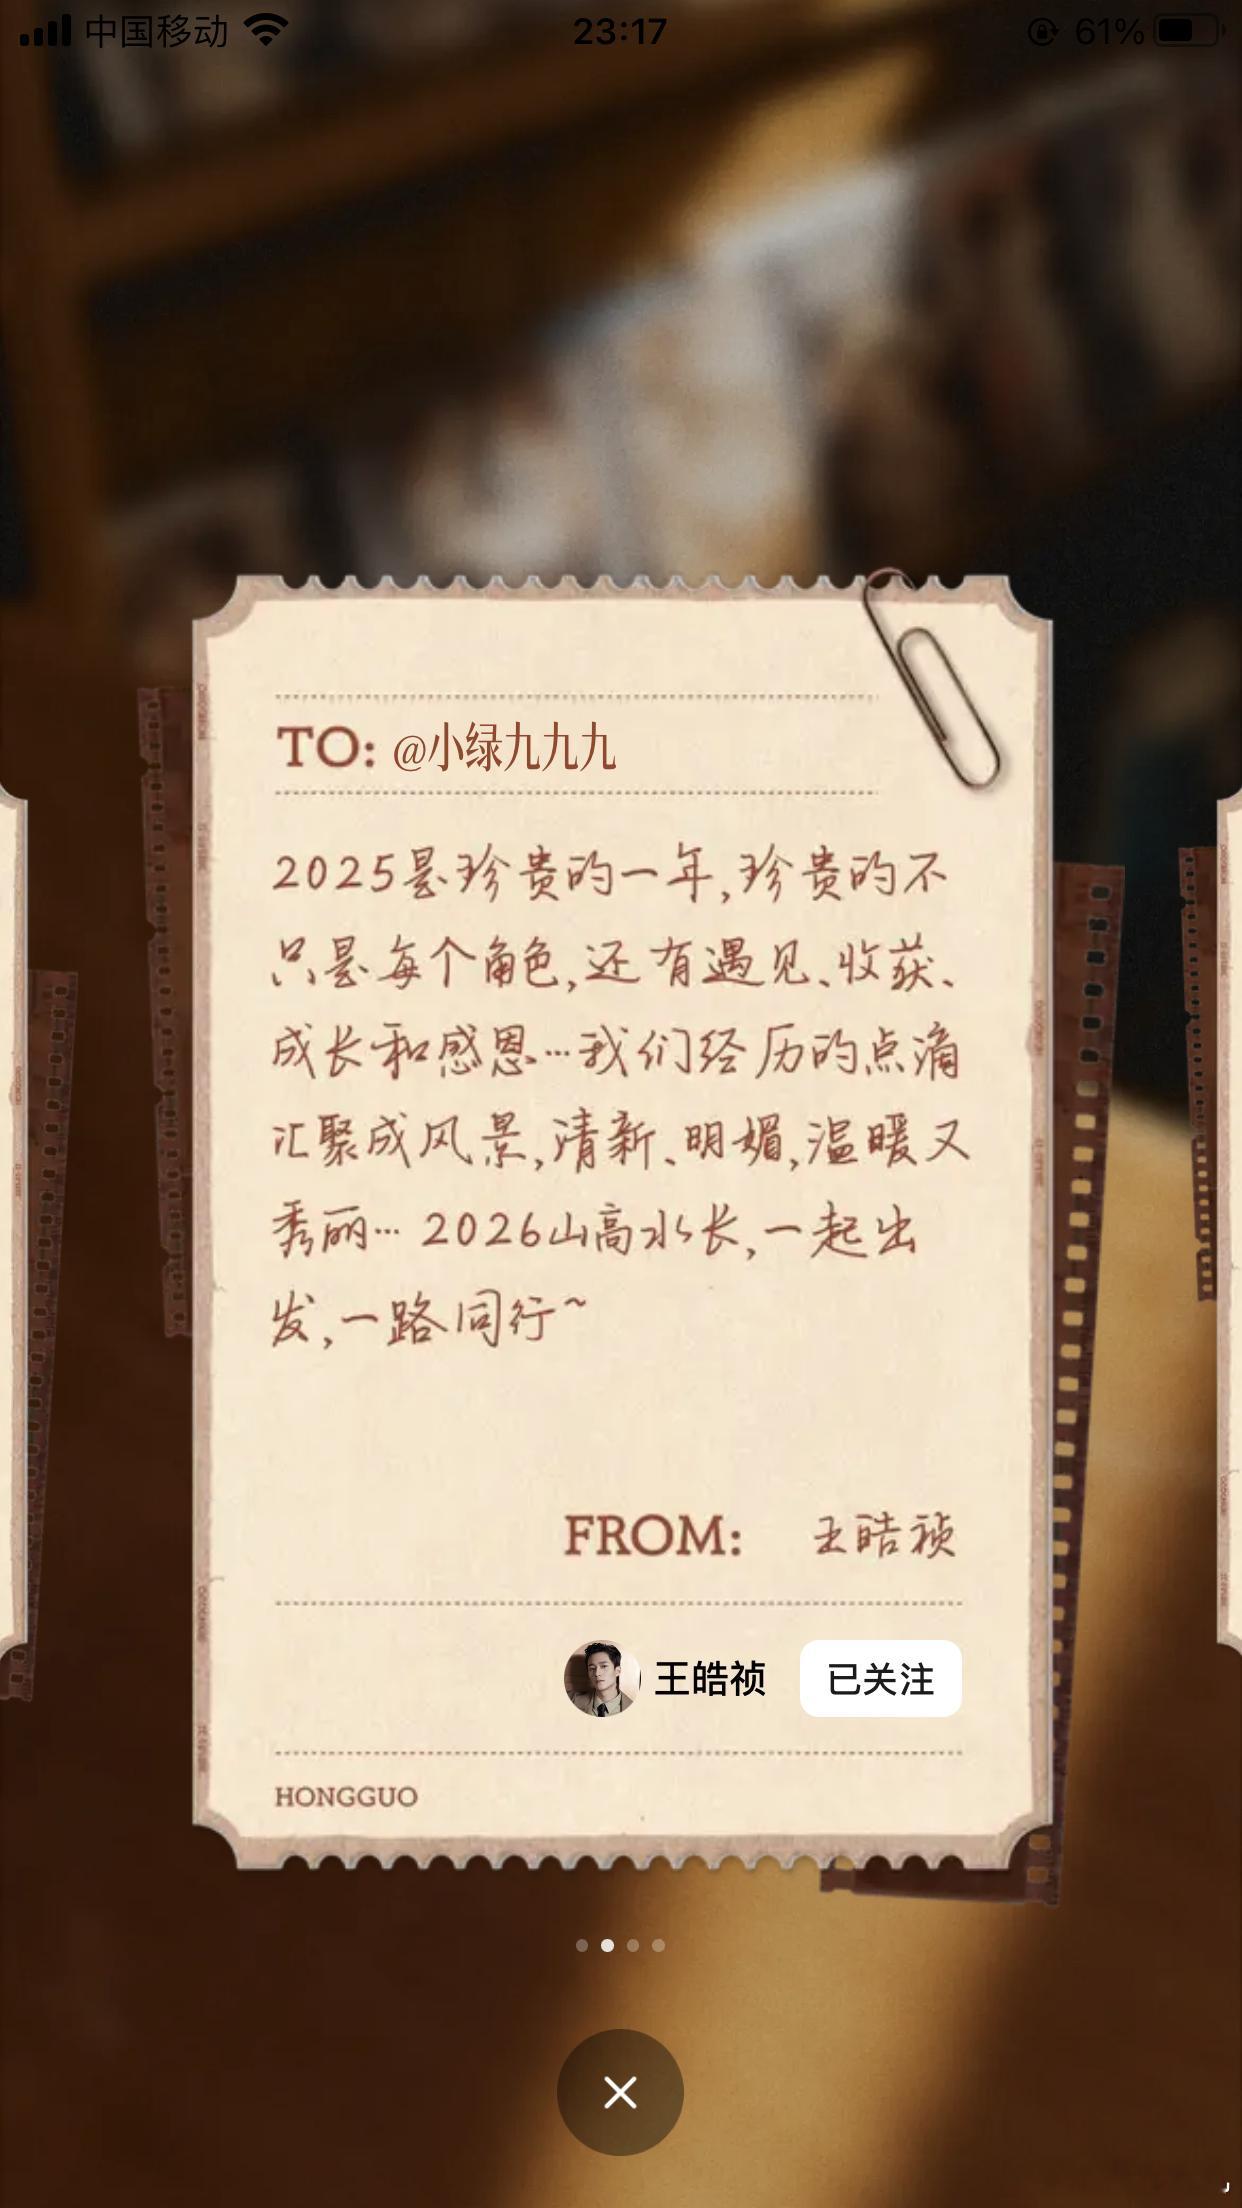 中国移动 23:17 61%
TO: @小绿九九九
2025是珍贵的一年,珍贵的不
只是每个角色,还有遇见、收获、
成长和感恩…我们经历的点滴
汇聚成风景,清新、明媚,温暖又
秀丽… 2026山高水长,一起出
发,一路同行~
FROM: 王皓祯
王皓祯 已关注
HONGGUO